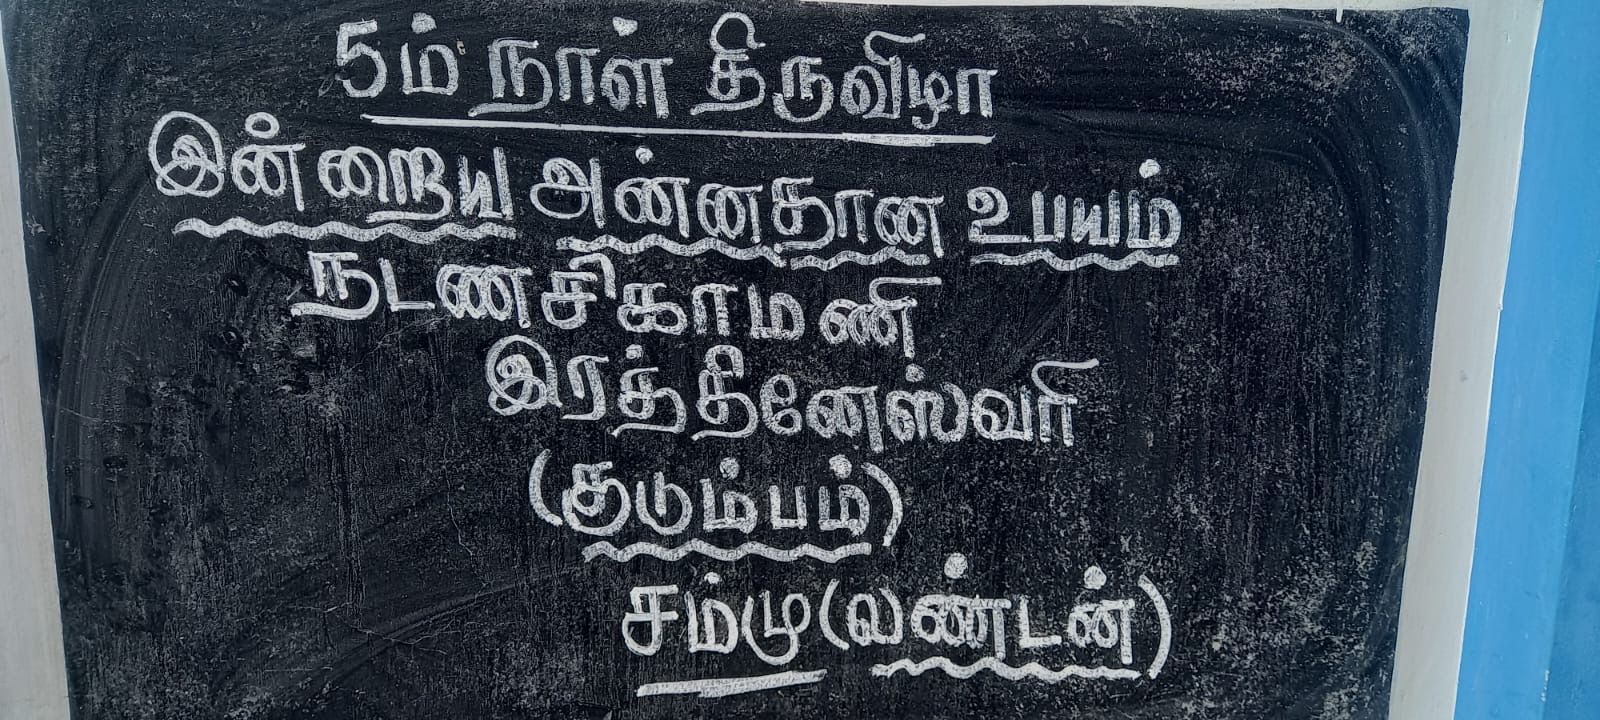 5ம் நாள் திருவிழா
இன்றைய அன்னதான உபயம்
நடணசிகாமணி
இரத்தினேஸ்வரி
(குடும்பம்)
சம்மு(லண்டன்)